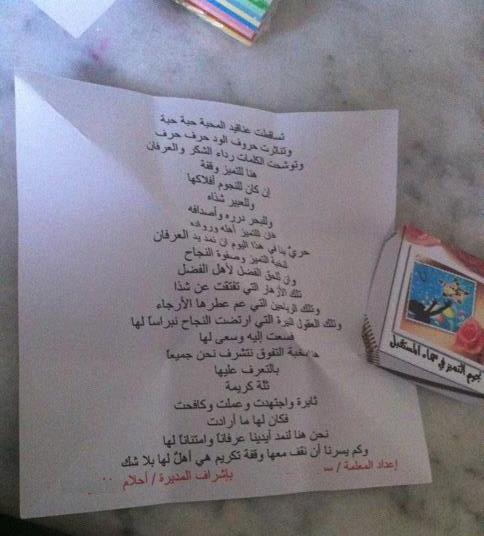 تساقطت عناقيد المحبة حبة حبة
وتناثرت حروف الود حرف حرف
وتوشحت الكلمات رداء الشكر والعرفان
هنا للتميز وقفة
إن كان للنجوم أفلاكها
وللعبير شذاه
وللبحر درره وأصدافه
فإن للتميز أهله ورواده
حريٌ بنا في هذا اليوم ان نمد يد العرفان
لنخبة التميز وصفوة النجاح
وإن للحق الفضل لأهل الفضل
تلك الأزهار التي تفتقت عن شذا
وتلك الرياحين التي عم عطرها الأرجاء
وتلك العقول النيرة التي ارتضت النجاح نبراساً لها
فسعت إليه وسعى لها
التفوق نتشرف نحن جميعاً
بالتعرف عليها
ثلة كريمة
ثابرة واجتهدت وعملت وكافحت
فكان لها ما أرادت
نحن هنا لنمد أيدينا عرفاناً وامتناناً لها
وكم يسرنا أن نقف معها وقفة تكريم هي أهلٌ لها بلا شك
إعداد المعلمة /
بإشراف المديرة / أحلام
نجوم التميز في سماء المستقبل